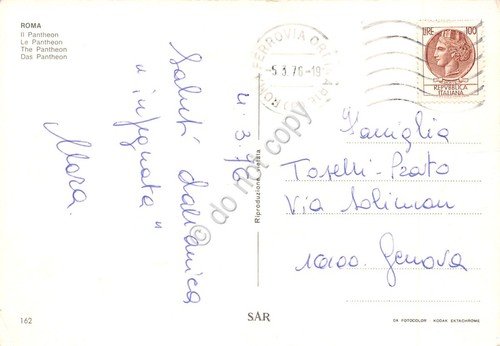 ROMA
Il Pantheon
Le Pantheon
The Pantheon
Das Pantheon
Saluti dall'amica
"impegnata"
Mara.
4.3.76
Riproduzione vietata
do not copy
ROMA FERROVIA
5.3.76-19
LIRE 100
REPVBBLICA
ITALIANA
Famiglia
Toselli-Prato
Via Soliman
16100 Genova
162
SAR
DA FOTOCOLOR KODAK EKTACHROME